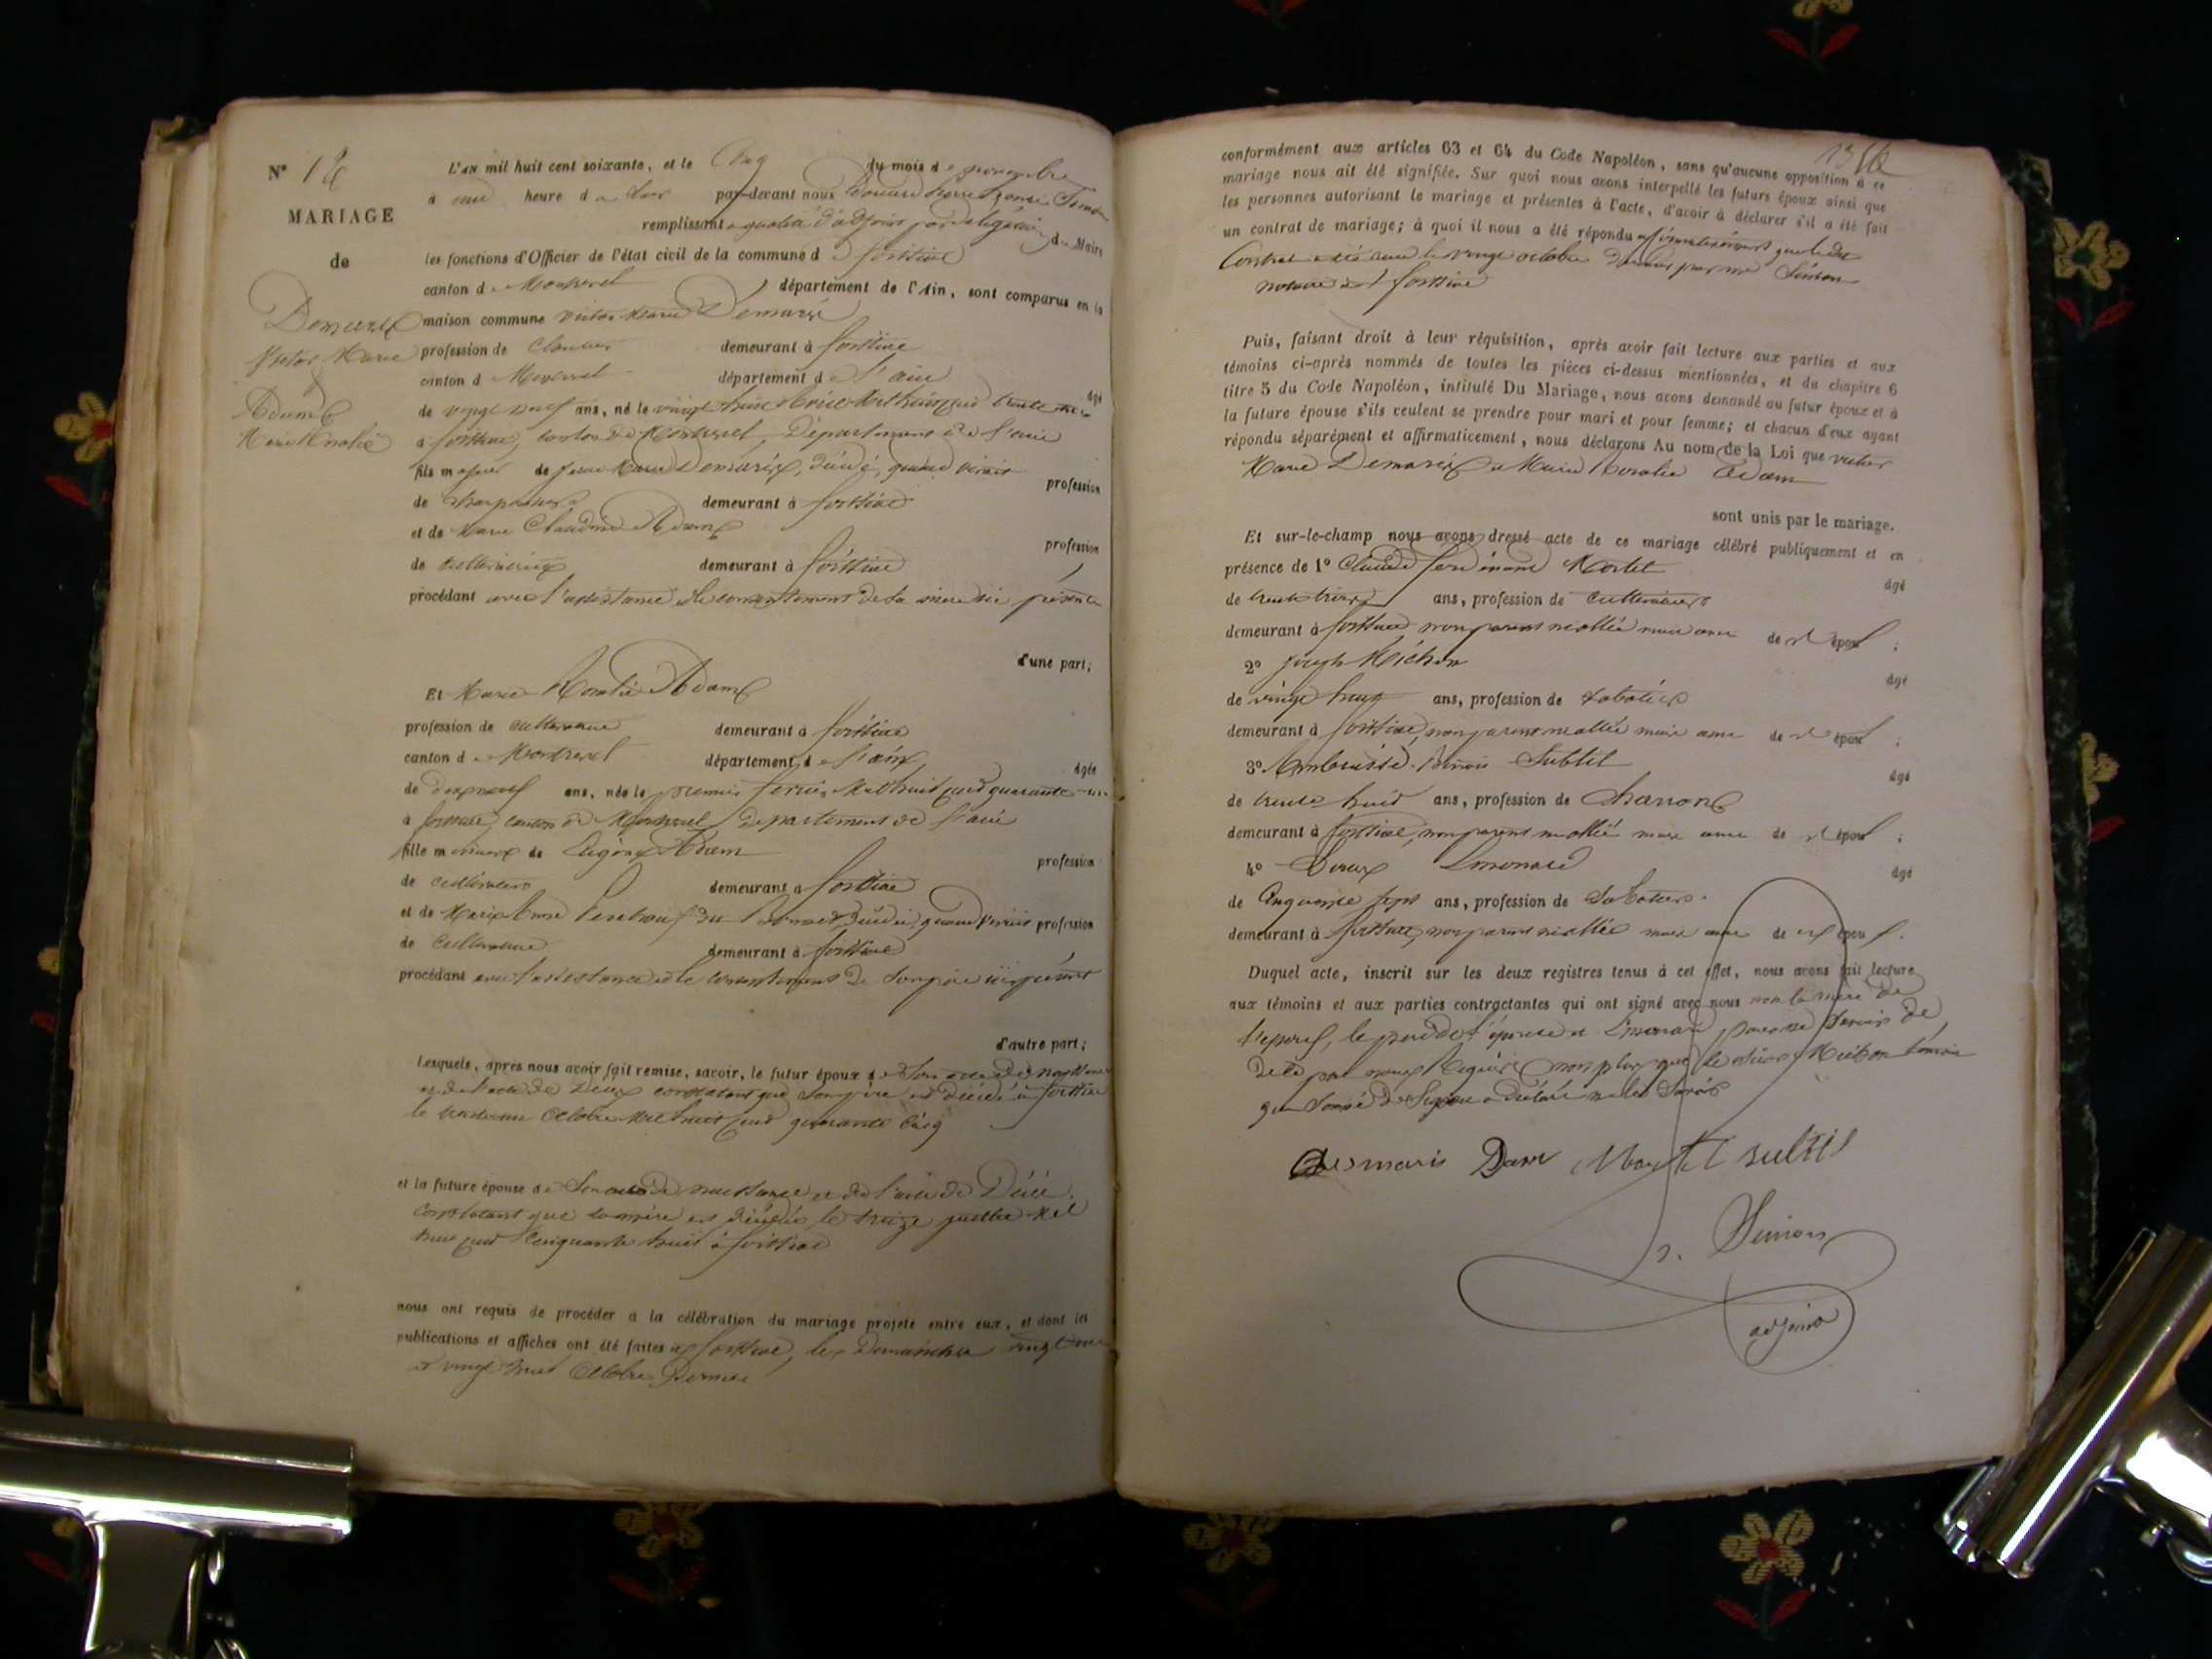 N° 12
MARIAGE
de
Demarix
Victor Marie
&
Adam
Marie Rosalie
L'AN mil huit cent soixante, et le Cinq du mois de novembre
à une heure du soir par-devant nous Simon
remplissant en qualité d'adjoint par délégation du Maire
les fonctions d'Officier de l'état civil de la commune de foissiat
canton de Montrevel département de l'Ain, sont comparus en la
maison commune victor Marie Demarix
profession de demeurant à foissiat
canton de Montrevel département de l'ain âgé
de vingt neuf ans, né le vingt huit mil huit cent trente un
à foissiat, canton de Montrevel, Département de l'ain
fils majeur de feu Marie Demarix, décédé, quand vivait profession
de demeurant à foissiat
et de Marie Claudine Adam profession
de cultivatrice demeurant à foissiat
procédant avec l'assistance et le consentement de sa mère ici présente
d'une part;
Et Marie Rosalie Adam
profession de cultivatrice demeurant à foissiat
canton de Montrevel département de l'ain, âgée
de dix neuf ans, née le premier février mil huit cent quarante un
à foissiat, canton de Montrevel, département de l'ain
fille mineure de Eugène Adam profession
de cultivateur demeurant à foissiat
et de Marie Anne décédée, quand vivait profession
de cultivatrice demeurant à foissiat
procédant avec l'assistance et le consentement de son père ici présent
d'autre part;
Lesquels, après nous avoir fait remise, savoir, le futur époux de son acte de naissance
et de l'acte de Décès constatant que son père est décédé à foissiat
le trente un octobre mil huit cent quarante cinq
et la future épouse de son acte de naissance et de l'acte de Décès
constatant que sa mère est décédée le treize juillet mil
huit cent cinquante huit à foissiat
nous ont requis de procéder à la célébration du mariage projeté entre eux, et dont les
publications et affiches ont été faites à foissiat, les Dimanches vingt un
et vingt huit octobre Dernier
conformément aux articles 63 et 64 du Code Napoléon, sans qu'aucune opposition à ce
mariage nous ait été signifiée. Sur quoi nous avons interpellé les futurs époux ainsi que
les personnes autorisant le mariage et présentes à l'acte, d'avoir à déclarer s'il a été fait
un contrat de mariage; à quoi il nous a été répondu affirmativement que le dit
Contrat a été reçu le vingt octobre dernier par me Simon
notaire à foissiat
Puis, faisant droit à leur réquisition, après avoir fait lecture aux parties et aux
témoins ci-après nommés de toutes les pièces ci-dessus mentionnées, et du chapitre 6
titre 5 du Code Napoléon, intitulé Du Mariage, nous avons demandé au futur époux et à
la future épouse s'ils veulent se prendre pour mari et pour femme; et chacun d'eux ayant
répondu séparément et affirmativement, nous déclarons Au nom de la Loi que victor
Marie Demarix et Marie Rosalie Adam
sont unis par le mariage.
Et sur-le-champ nous avons dressé acte de ce mariage célébré publiquement et en
présence de 1° Claude ferdinand Mortet âgé
de trente trois ans, profession de cultivateur
demeurant à foissiat non parent ni allié mais ami de l'époux;
2° joseph Michon âgé
de vingt huit ans, profession de sabotier
demeurant à foissiat, non parent ni allié mais ami de l'époux;
3° Ambroise Benoit Subtil âgé
de trente huit ans, profession de charron
demeurant à foissiat, non parent ni allié mais ami de l'époux;
4° Limonard âgé
de cinquante sept ans, profession de sabotier
demeurant à foissiat, non parent ni allié mais ami de époux.
Duquel acte, inscrit sur les deux registres tenus à cet effet, nous avons fait lecture
aux témoins et aux parties contractantes qui ont signé avec nous non la mère de
l'époux, le père de l'épouse et Limonard de
par nous requis non plus que le sieur Michon témoin
qui sommé de signer a déclaré ne le savoir
Desmaris Dam Mortet subtil
Simon
adjoint